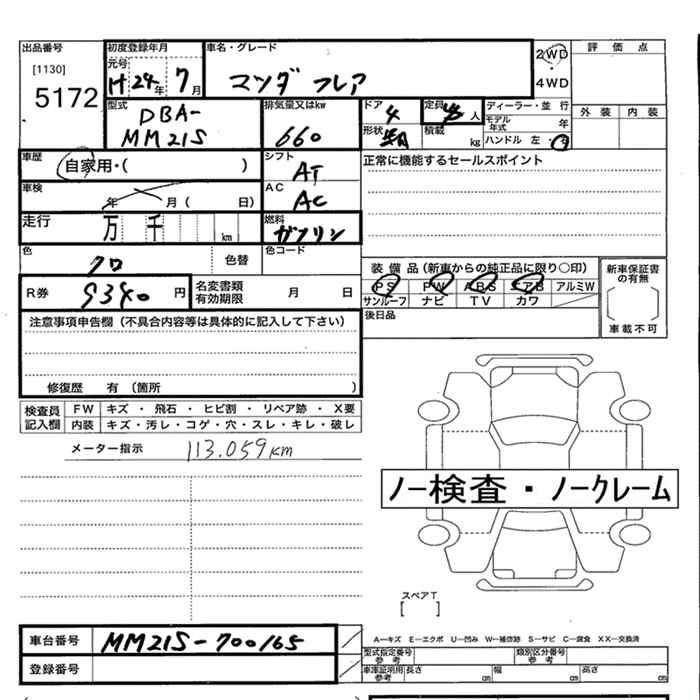 出品番号
[1130]
5172
初度登録年月
元号
H24年 7月
車名・グレード
マツダ フレア
2WD
・
4WD
評価点
外装 内装
型式
DBA-
MM21S
排気量又はkw
660
ドア
4
形状
定員
人
積載
kg
ディーラー・並行
モデル年式 年
ハンドル 左・右
車歴
自家用・( )
シフト
AT
正常に機能するセールスポイント
車検
年 月( 日)
AC
AC
走行
万 千 km
燃料
ガソリン
色
クロ
色替
色コード
装備品(新車からの純正品に限り〇印)
PS PW ABS エアB アルミW
サンルーフ ナビ TV カワ
新車保証書の有無
車載不可
R券
9340円
名変書類
有効期限
月 日
後日品
注意事項申告欄(不具合内容等は具体的に記入して下さい)
修復歴 有(箇所 )
検査員記入欄
FW キズ・飛石・ヒビ割・リペア跡・X要
内装 キズ・汚レ・コゲ・穴・スレ・キレ・破レ
メーター指示 113.059km
ノー検査・ノークレーム
スペアT
[ ]
A―キズ E―エクボ U―凹み W―補修跡 S―サビ C―腐食 XX―交換済
車台番号
MM21S-700165
登録番号
型式指定番号
参考
類別区分番号
参考
車庫証明用
参考
長さ cm 幅 cm 高さ cm